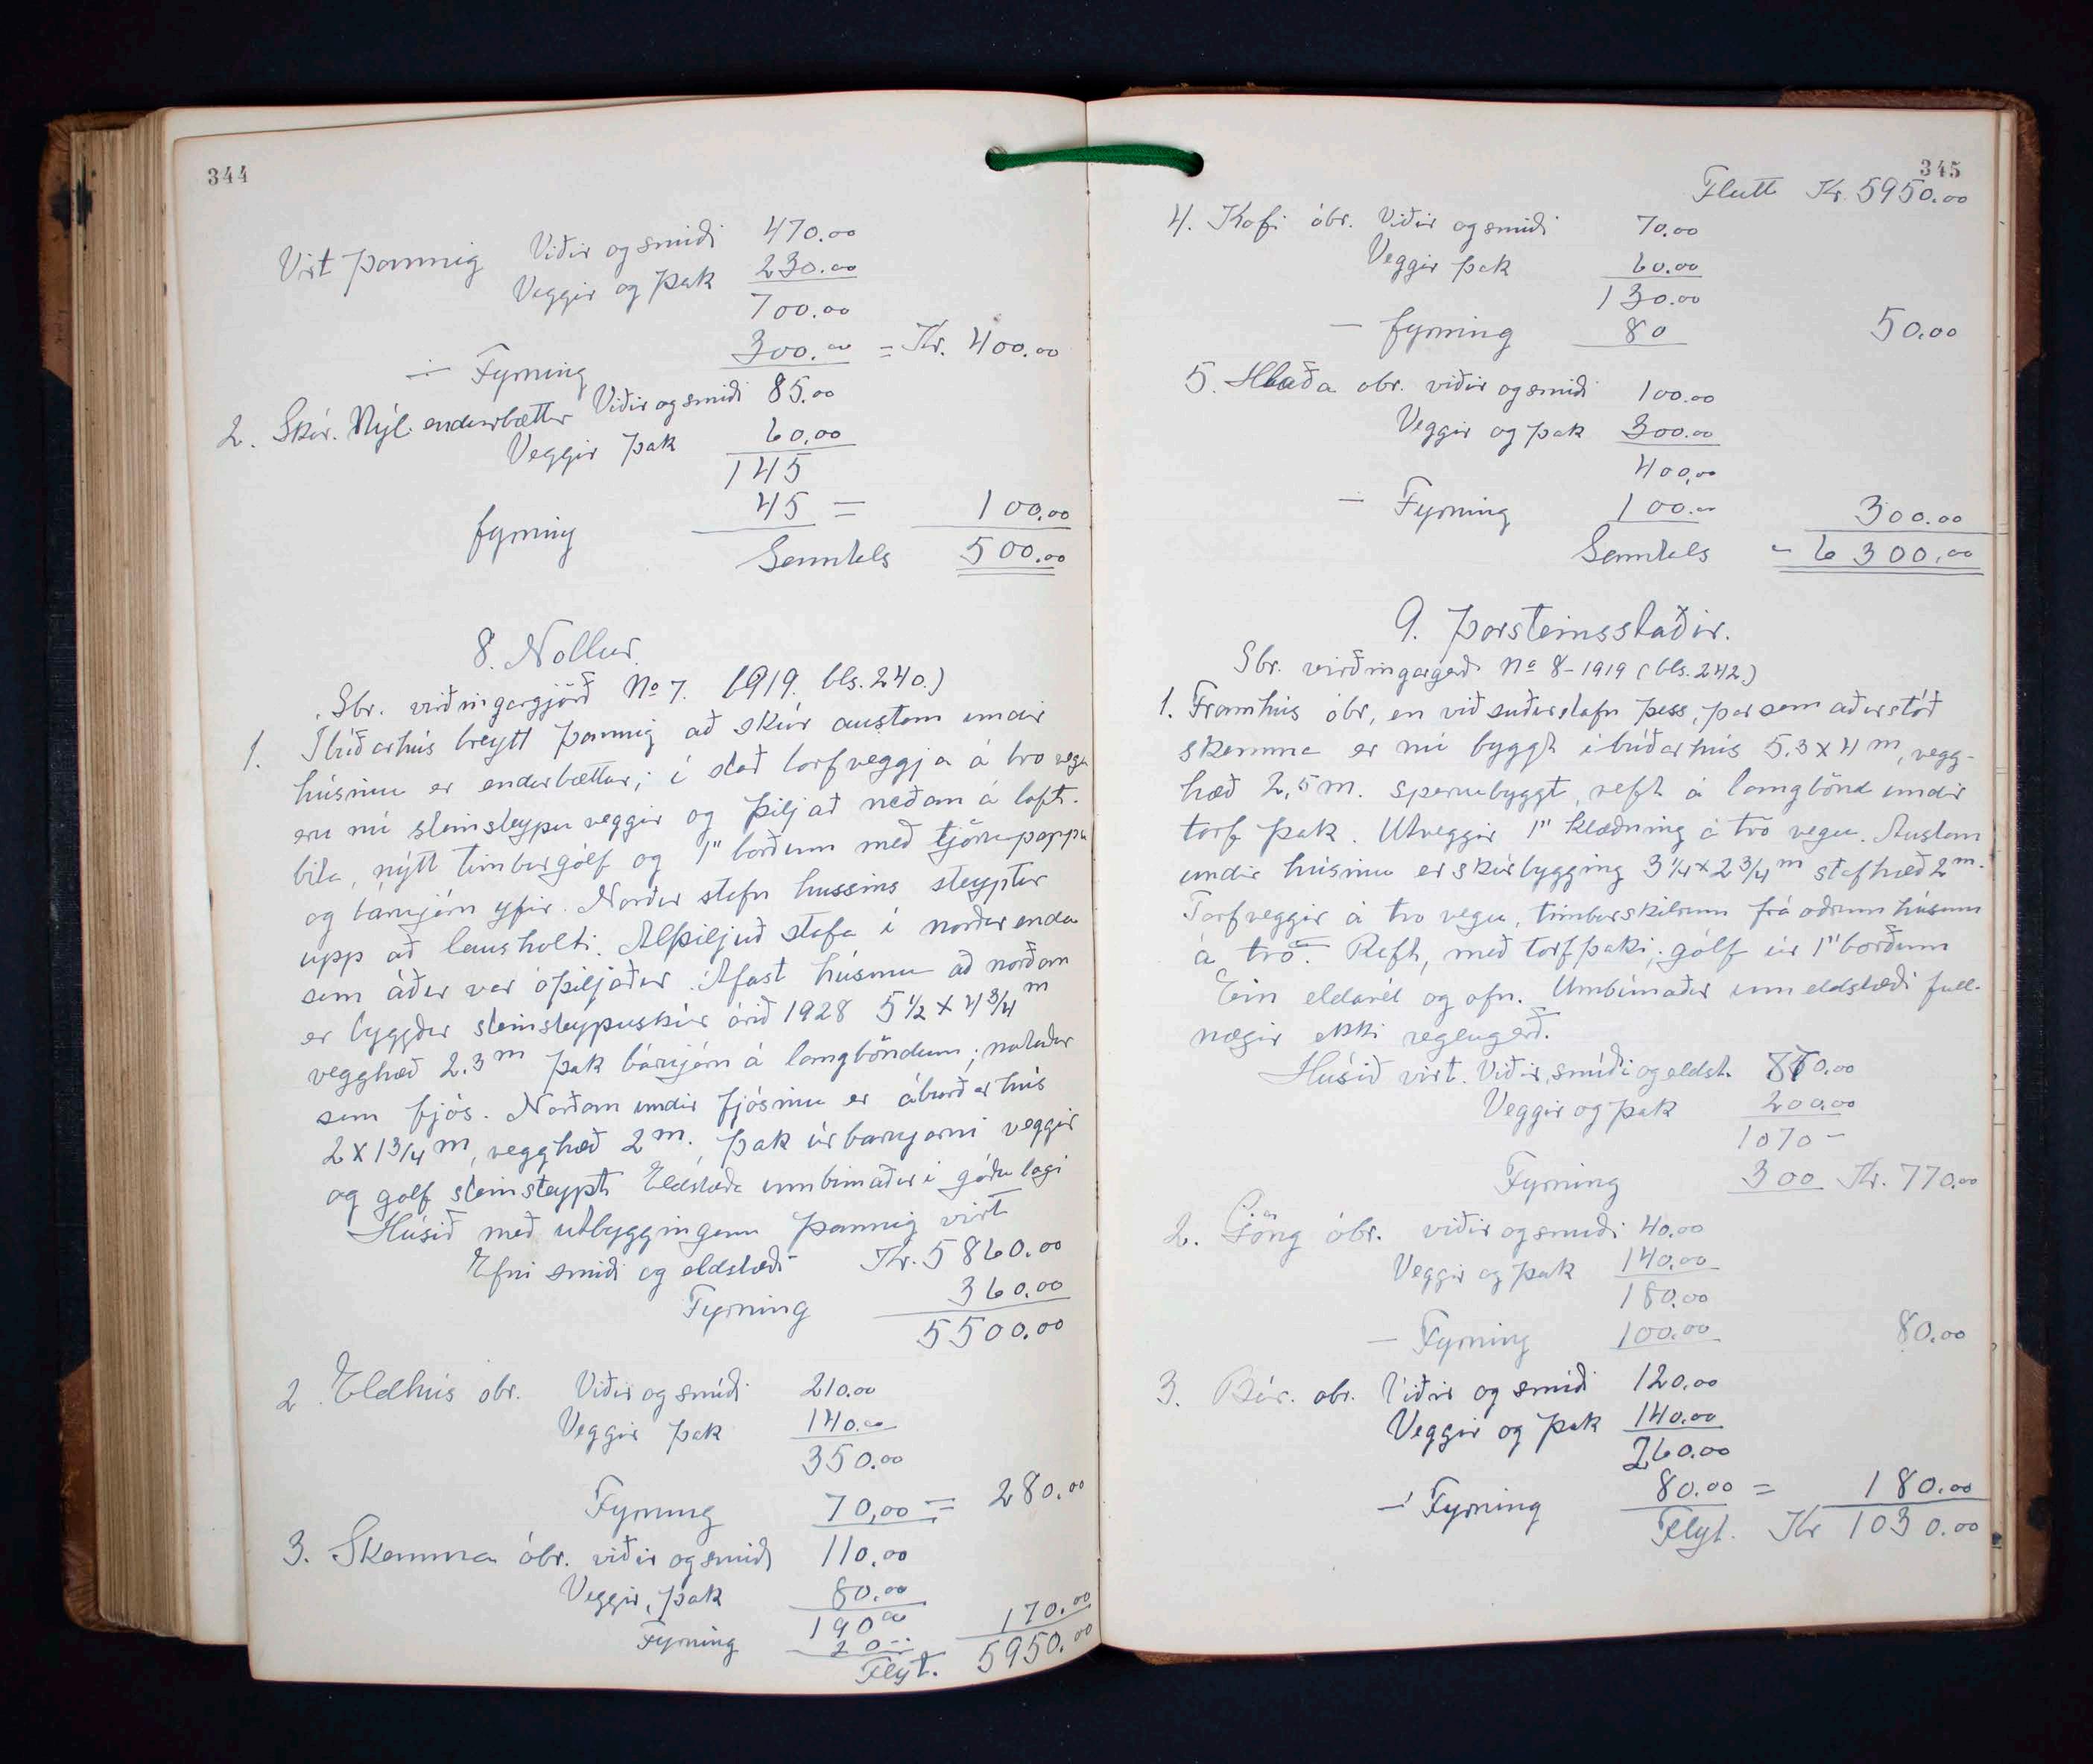 344
Virt þannig Viðir og smiði 470.00
Veggir og þak 230.00
700.00
÷ Fyrning 300.00 = Kr. 400.00
2. Skúr. Nýl. endurbættur Viðir og smiði 85.00
Veggir þak 60.00
145
fyrning 45 = 100.00
Samtals 500.00
8. Nollur.
Sbr. virðingargjörð No 7. 1919. bls. 240.)
1. Íbúðarhús breytt þannig að skúr austan undir
húsinu er endurbættur; í stað torfveggja á tvo vegu
eru nú steinsteypu veggir og þiljað neðan á loft-
bita, nýtt timburgólf og 1" borðum með tjörupappa
og bárujárn yfir. Norður stafn hussins steyptur
upp að lausholti. Alþiljuð stofa í norður enda
sem áður var óþiljaður. Áfast húsinu að norðan
er byggður steinsteypuskúr árið 1928 5 1/2 x 4 3/4 m
vegghæð 2.3 m þak bárujárn á langböndum; notaður
sem fjós. Norðan undir fjósinu er áburðarhús
2 x 1 3/4 m, vegghæð 2 m. þak úr barujarni veggir
og golf steinsteypt. Eldstæða umbúnaður í góðu lagi
Húsið með útbyggingum þannig virt
Efni smiði og eldstæði Kr. 5860.00
Fyrning 360.00
5500.00
2. Eldhús obr. Viðir og smíði 210.00
Veggir þak 140.00
350.00
Fyrning 70,00 = 280.00
3. Skemma óbr. viðir og smiði 110.00
Veggir, þak 80.00
190.00
Fyrning 20 -- 170.00
Flyt. 5950.00
345
Flutt Kr. 5950.00
4. Kofi óbr. Viðir og smiði 70.00
Veggir þak 60.00
130.00
÷ fyrning 80 50.00
5. Hlaða obr. viðir og smiði 100.00
Veggir og þak 300.00
400,00
÷ Fyrning 100.00 300.00
Samtals - 6300.00
9. Þorsteinsstaðir.
Sbr. virðingargerð No 8-1919 (bls. 242.)
1. Framhús óbr, en við suðurstafn þess, þar sem aður stóð
skemma er nú byggt íbúðarhús 5.3 x 4 m, vegg-
hæð 2,5 m. sperrubyggt, reft á langbönd undir
torf þak. Utveggir 1" klæðning á tvo vegu. Austan
undir húsinu er skúrbygging 3 1/4 x 2 3/4 m stafhæð 2 m.
Torfveggir á tvo vegu, timburskilrum frá oðrum húsum
á tvo. Reft, með torfþaki; gólf úr 1" borðum
Ein eldavél og ofn. Umbúnaður um eldstæði full-
nægir ekki reglugerð.
Húsið virt. Viðir, smíði og eldst. 870.00
Veggir og þak 200.00
1070 -
Fyrning 300 Kr. 770.00
2. Göng óbr. viðir og smiði 40.00
Veggir og þak 140.00
180.00
÷ Fyrning 100.00 80.00
3. Búr. obr. Viðir og smíði 120.00
Veggir og þak 140.00
260.00
÷ Fyrning 80.00 = 180.00
Flyt. Kr 1030.00